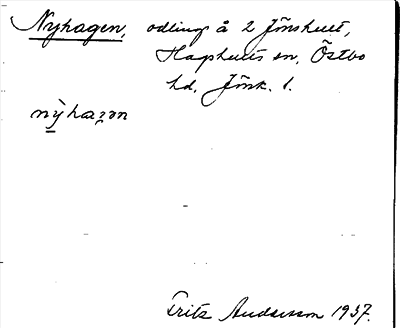 Nyhagen, odling å 2 Jönshult,
Hagshults sn, Östbo
hd, Jönk. l.
nỳhaɀən
Fritz Andersson 1937.